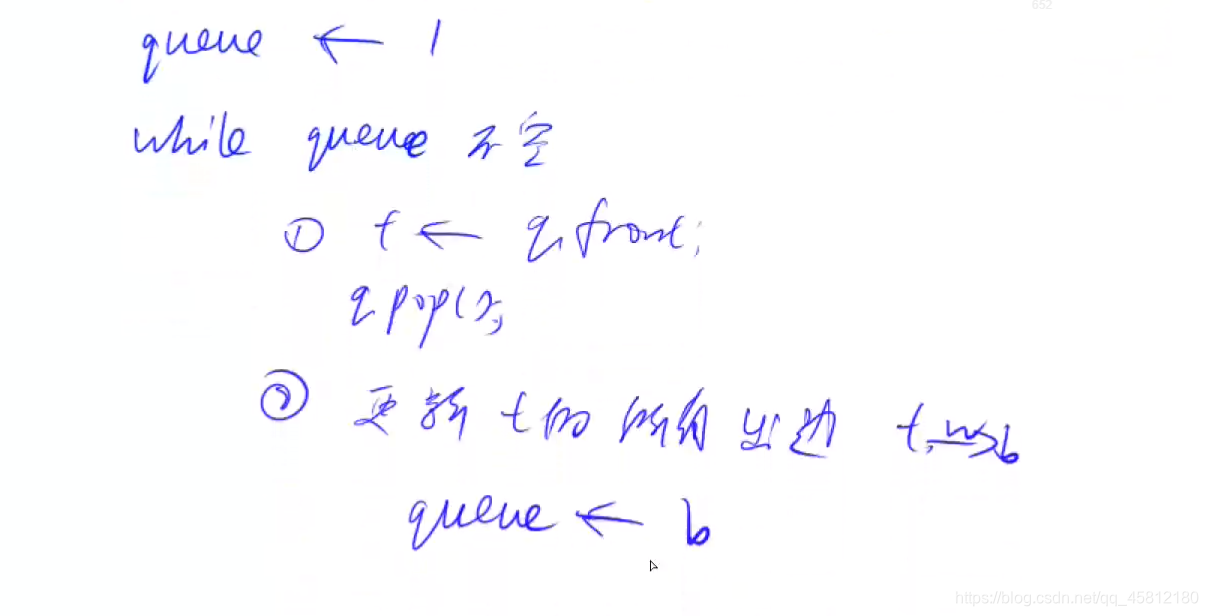 652
queue ← 1
while queue 不空
① t ← q.front;
q pop();
② 更新 t 的 所有 出边 t, w>b
queue ← b
https://blog.csdn.net/qq_45812180